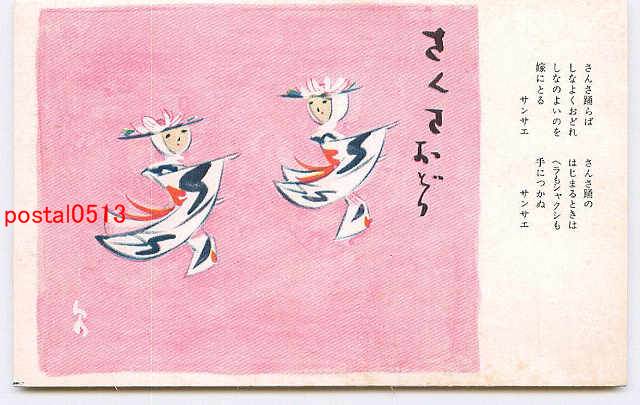 さんさおどり
さんさ踊らば
しなよくおどれ
しなのよいのを
嫁にとる
サンサエ
さんさ踊の
はじまるときは
ヘラもシャクシも
手につかぬ
サンサエ
postal0513